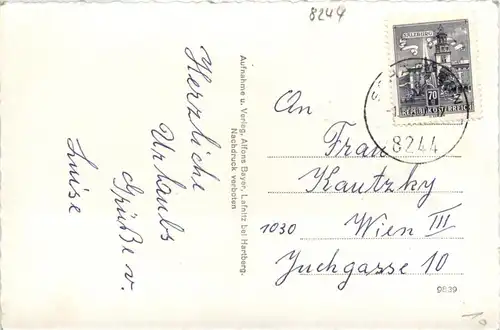 8244
Herzliche
Urlaubs
Grüße v.
Luise
Aufnahme u. Verlag, Alfons Bayer, Lafnitz bei Hartberg.
Nachdruck verboten
SALZBURG
70
REPUBLIK ÖSTERREICH
8244
An
Frau
Kautzky
1030 Wien III
Juchgasse 10
9839
10